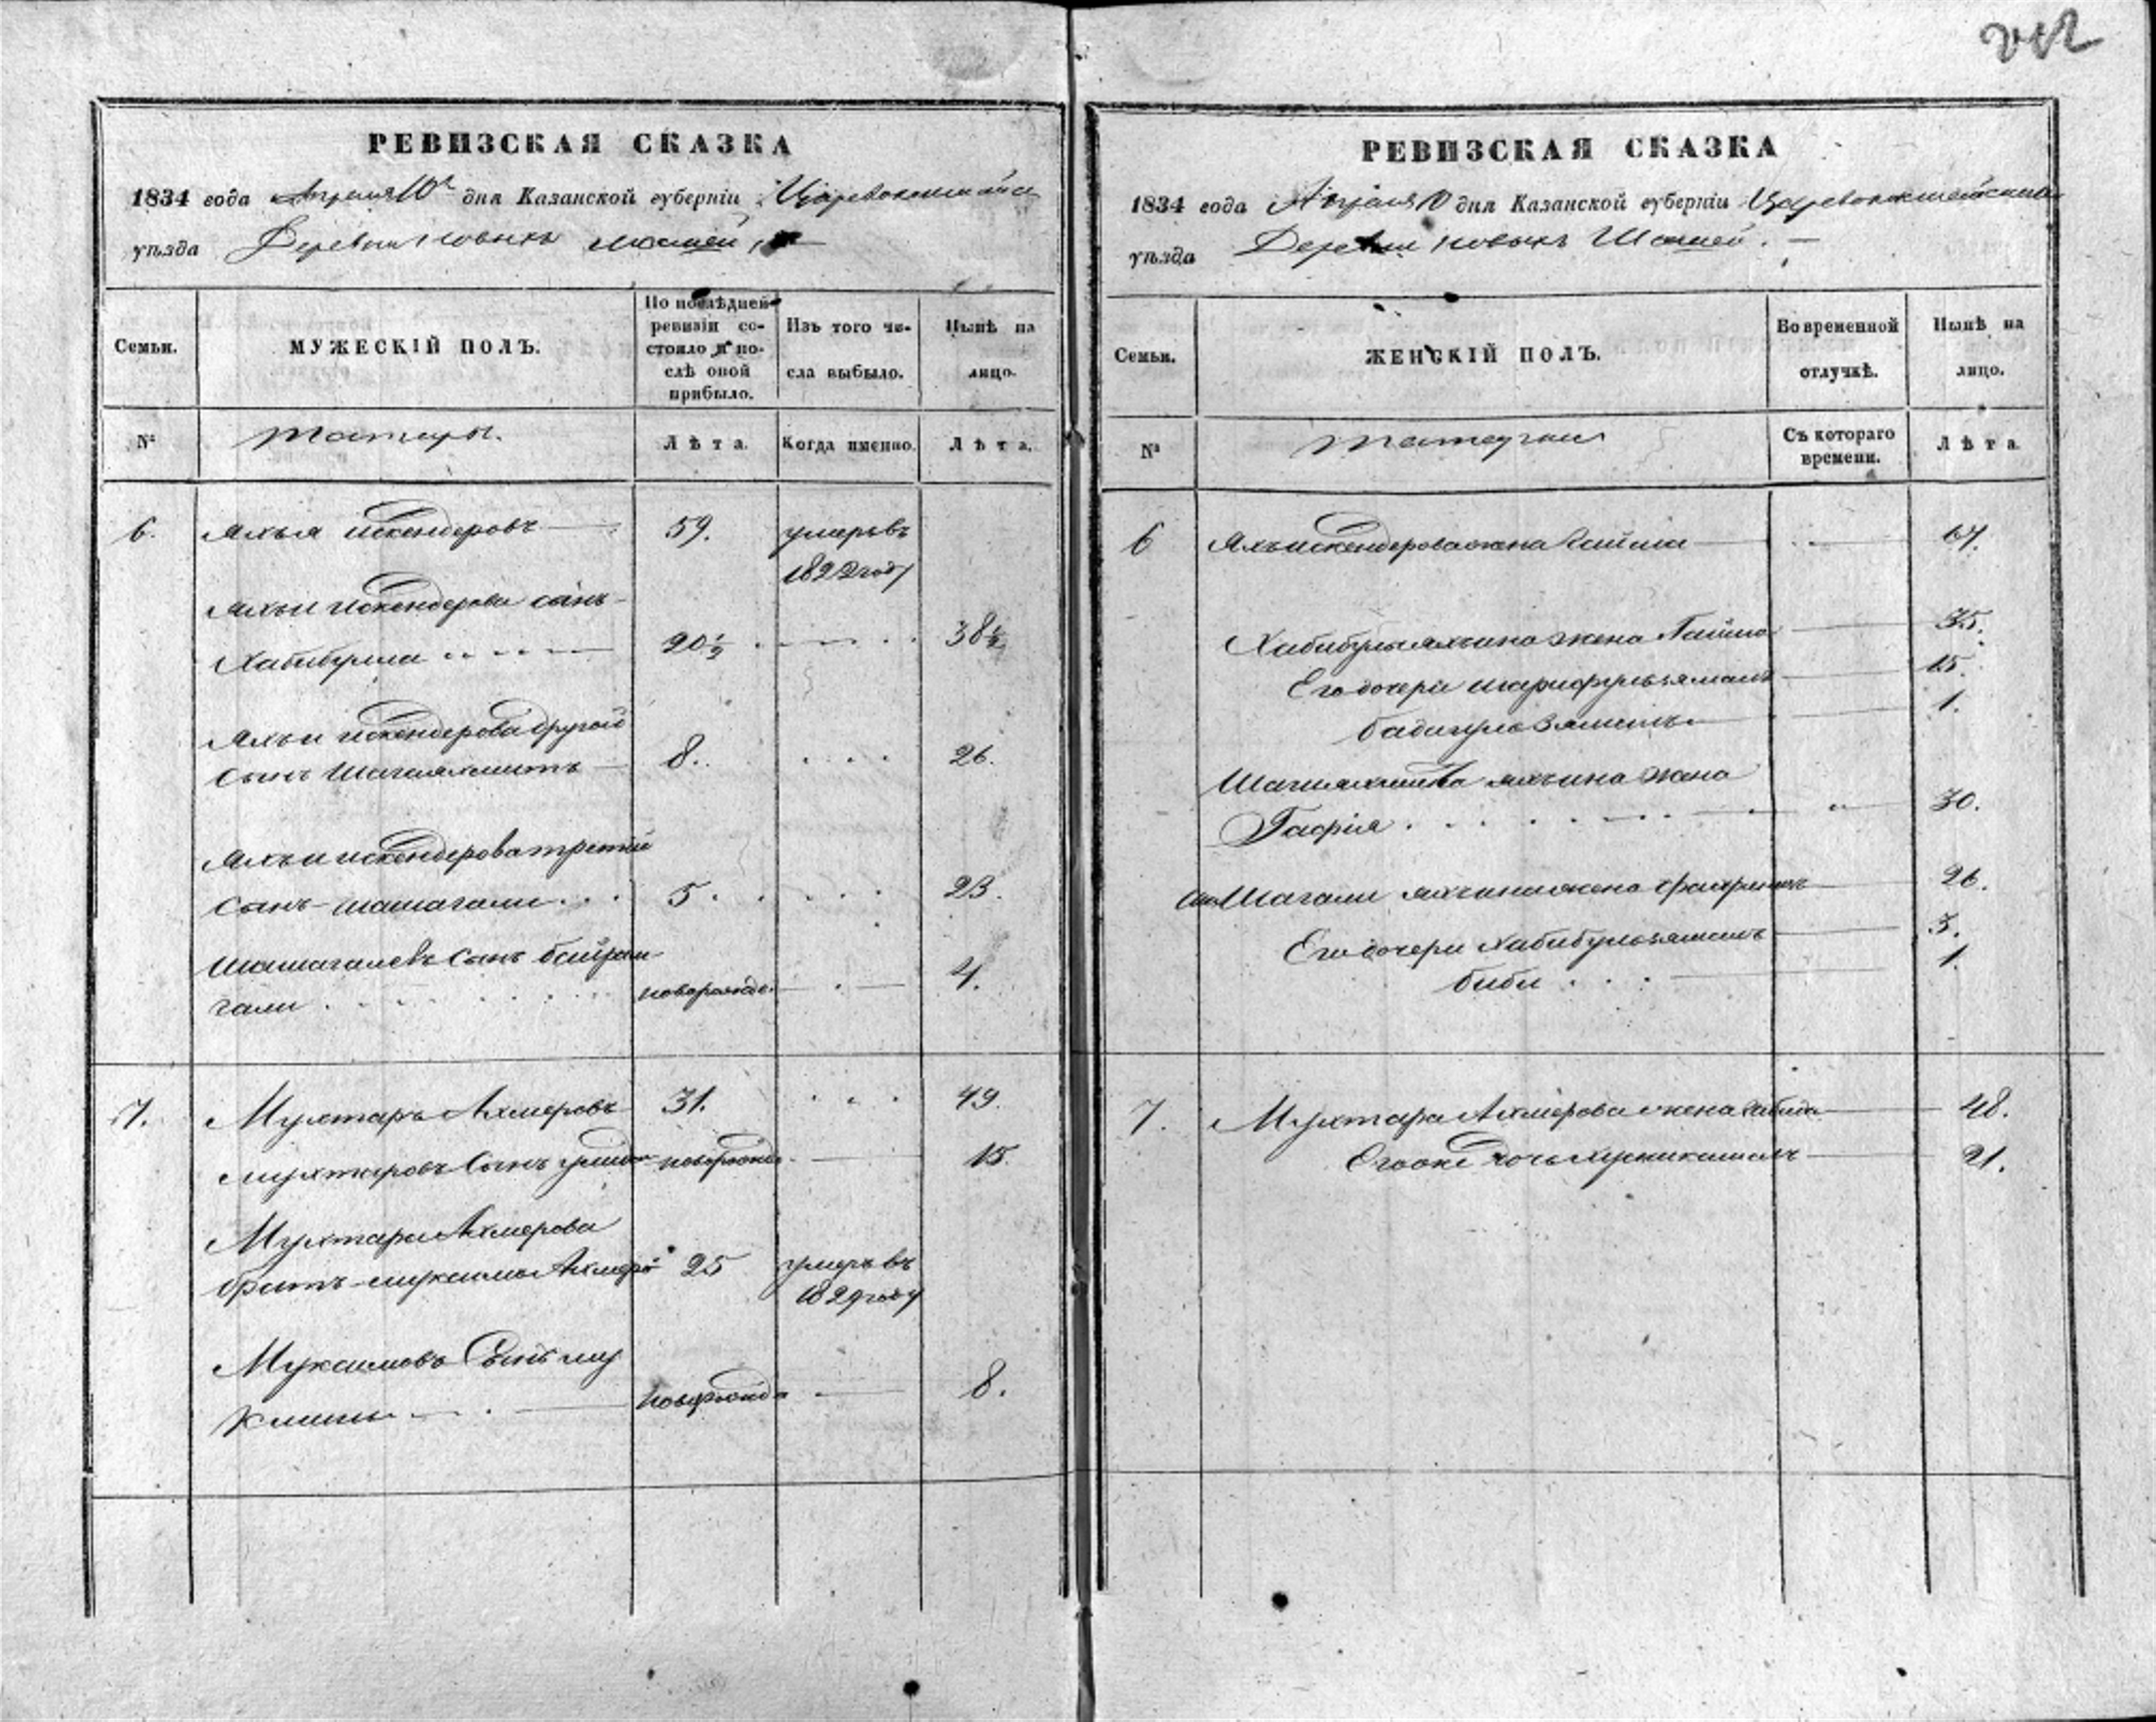 212
РЕВИЗСКАЯ СКАЗКА
1834 года Апреля 10 дня Казанской губерніи Царевококшайск
уѣзда Деревни новыхъ Мошей
Семьи.
МУЖЕСКІЙ ПОЛЪ.
По послѣдней ревизіи состояло и послѣ оной прибыло.
Изъ того числа выбыло.
Нынѣ на лицо.
№
татары.
Лѣта.
Когда именно.
Лѣта.
6. Яхъя искендеровъ 59. умеръ въ
1822 году
Яхьи искендерова сынъ
Хабибулла 20½ 38½
Яхьи искендерова другой
сынъ Шагиахметъ 8. 26.
Яхьи искендерова третій
сынъ шашагали 5. 23.
Шашагалеевъ сынъ байрам
гали новорожде. 4.
7. Мухтаръ Ахмеровъ 31. 49.
Мухтаровъ сынъ новорожде 15.
Мухтара Ахмерова
братъ Ахмеро 25 умеръ въ
1829 году
Муксимовъ Сынъ му
новорожде 8.
РЕВИЗСКАЯ СКАЗКА
1834 года Апреля 10 дня Казанской губерніи Царевококшайскаго
уѣзда Деревни новыхъ
Семьи.
ЖЕНСКІЙ ПОЛЪ.
Во временной отлучкѣ.
Нынѣ на лицо.
№
татарки
Съ котораго времени.
Лѣта.
6 Яхьи искендерова жена 67.
Хабибулы яхьина жена 35.
Его дочери шарифульзямалъ 15.
бадигульзямалъ 1.
Шагиахмета яхьина жена
Гафія 30.
Шагали яхьина жена 26.
Его дочери Хабибульзямалъ 3.
биби 1.
7. Мухтара Ахмерова жена 48.
Его же дочь 21.